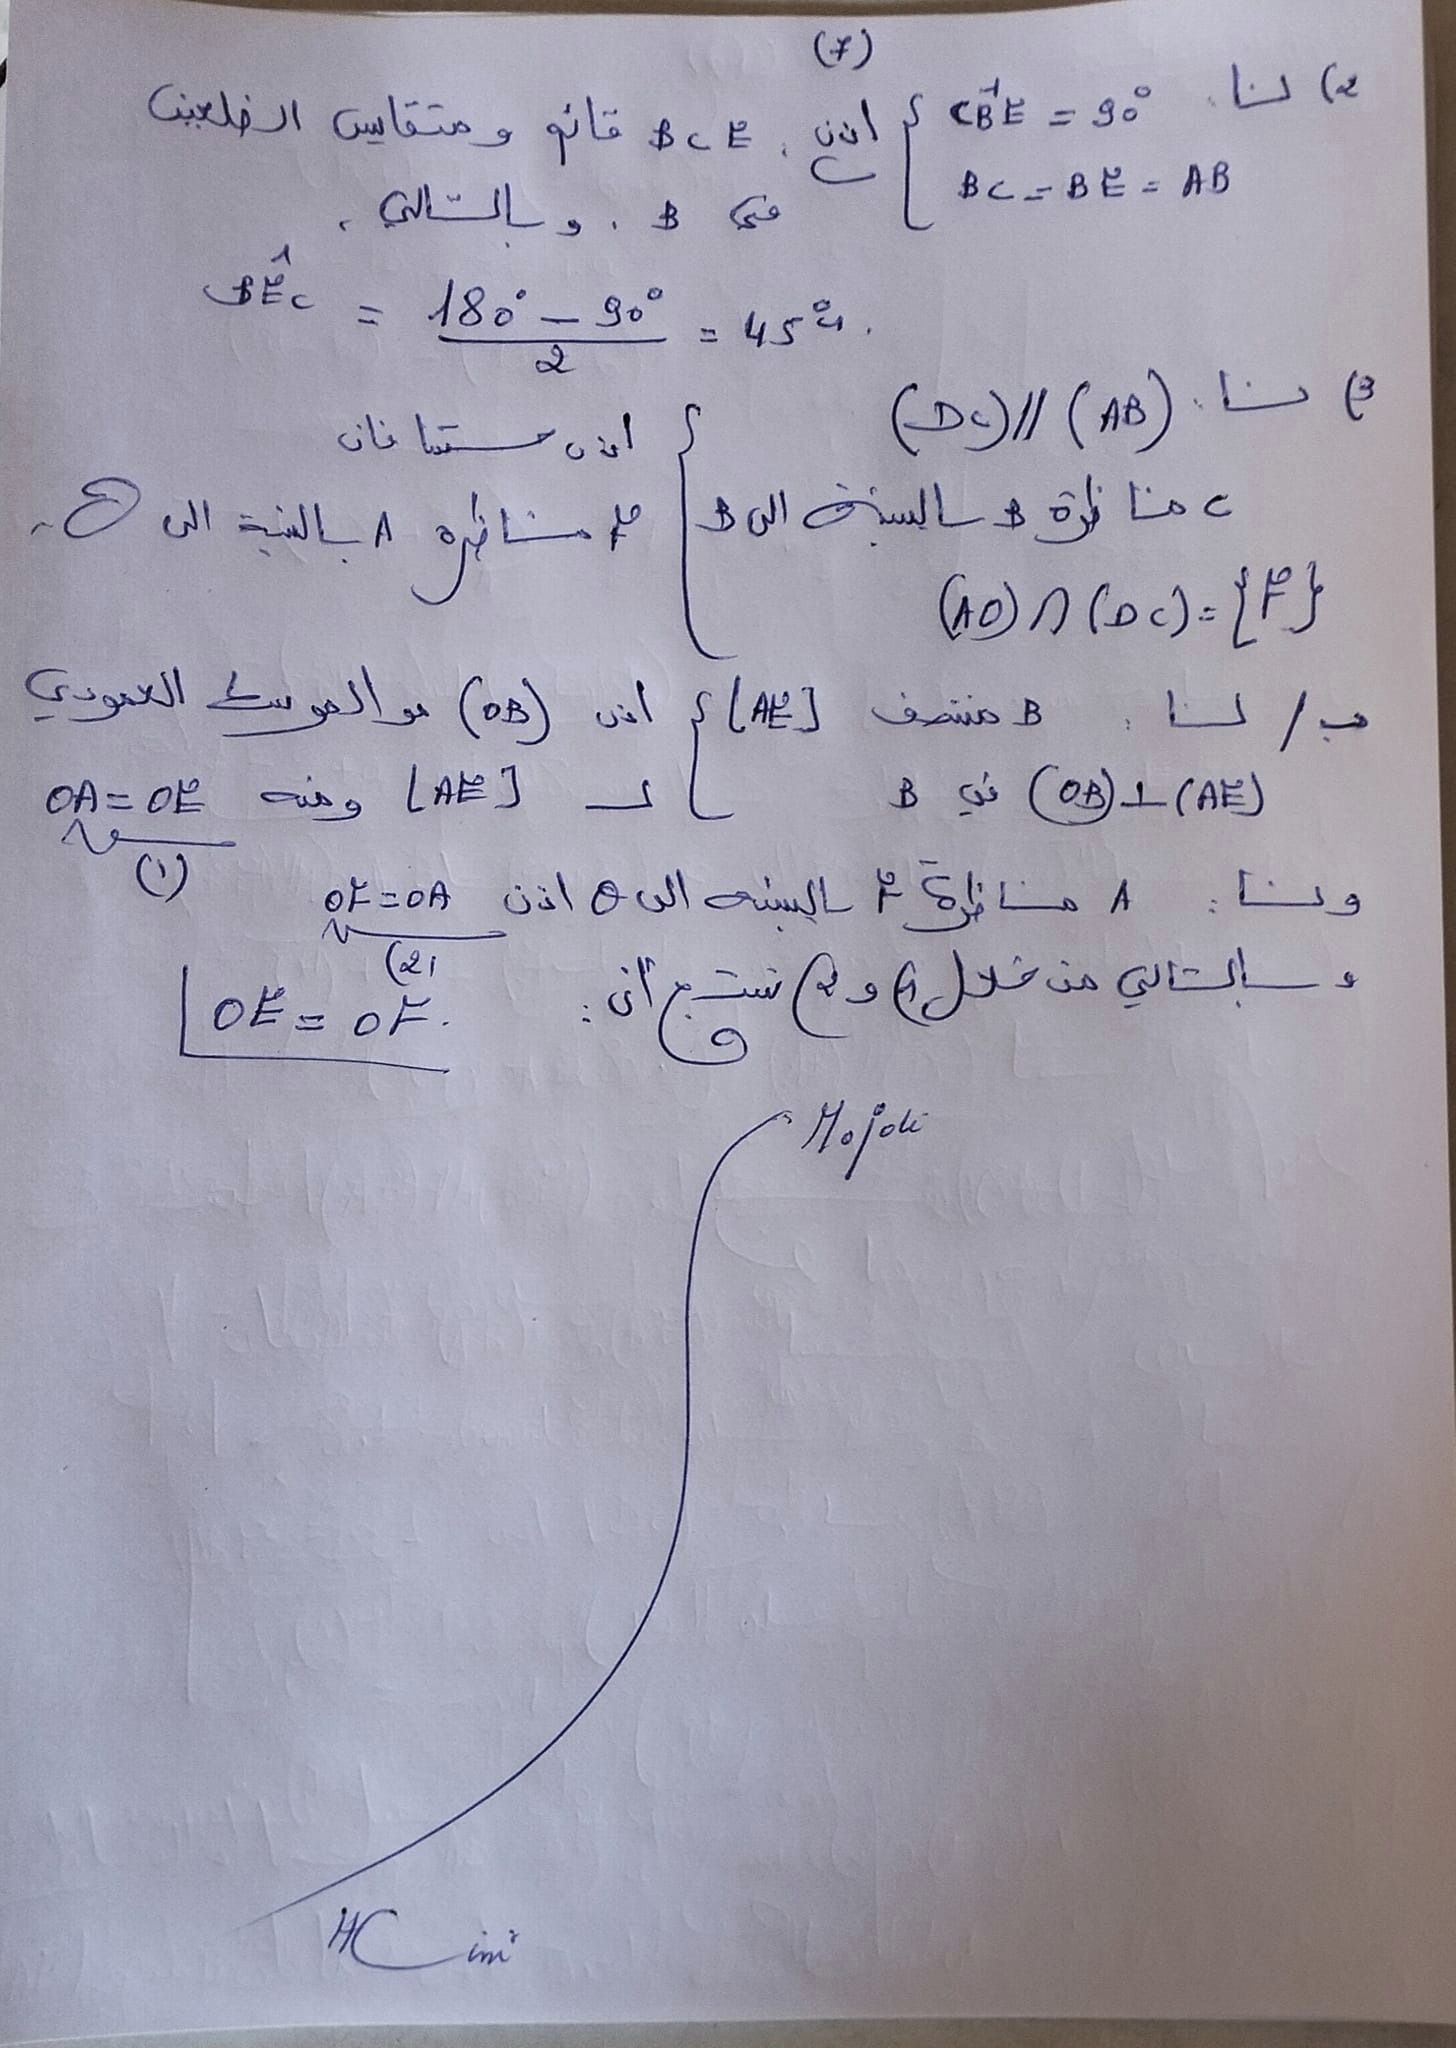 (7)
2) لنا: CB̂E = 90° اذن، BCE قائم و متقايس الضلعين
BC = BE = AB في B. وبالتالي،
BÊC = (180° - 90°)/2 = 45°.
3) لنا: (DC) // (AB) اذن مستقا فان
C مناظرة B بالنسبة الى B F مناظرة A بالنسبة الى O.
(AO) ∩ (DC) = {F}
ب/ لنا: B منتصف [AE] اذن (OB) هو الموسط العمودي
(OB) ⊥ (AE) في B لـ [AE] ومنه OA = OE
(1)
ولنا: A مناظرة F بالنسبة الى O اذن OF = OA
(2)
وبالتالي من خلال 1) و 2) نستنتج أن:
OE = OF.
Mojdi